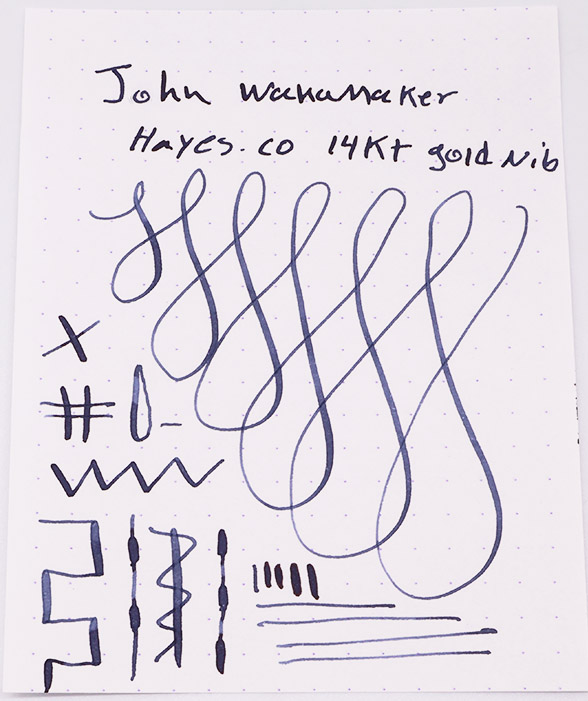 John Wanamaker
Hayes. co 14Kt gold Nib